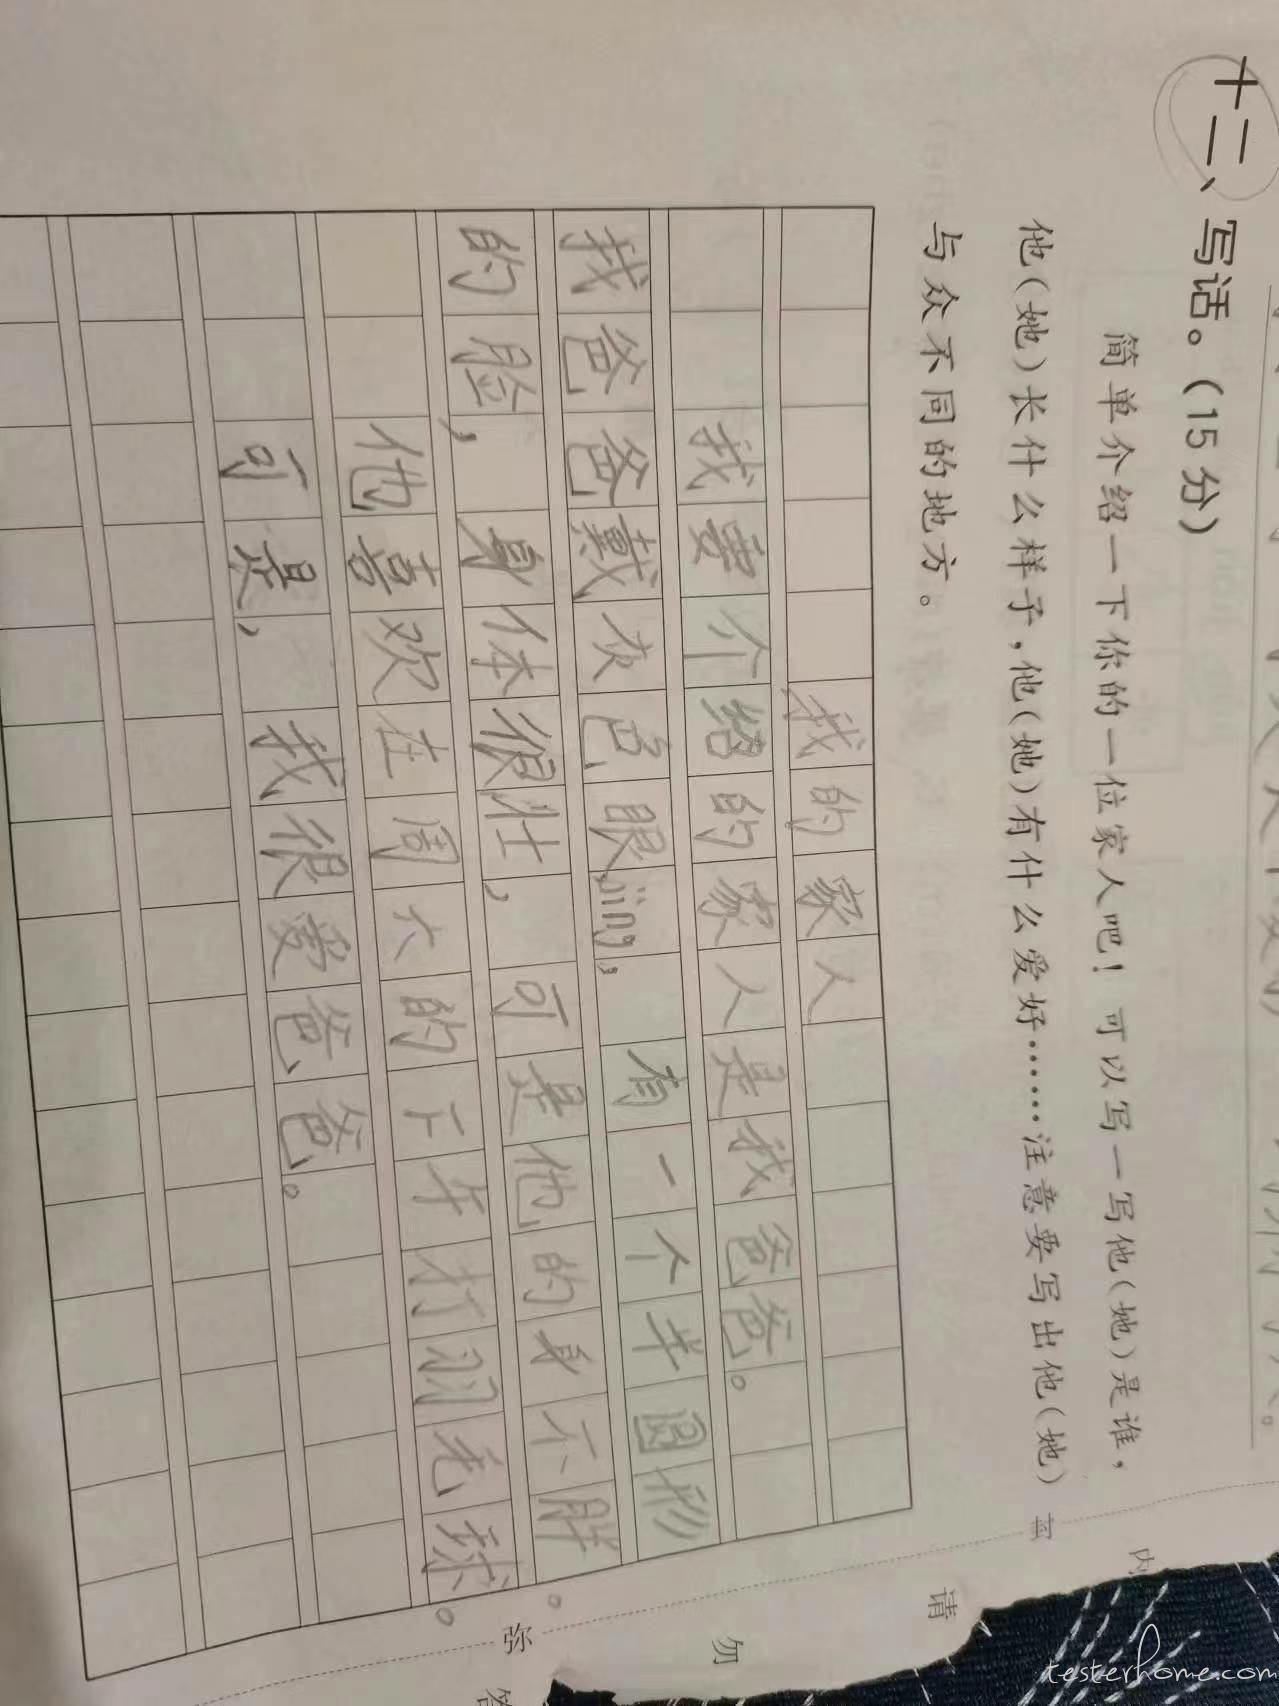 十二、写话。（15分）
简单介绍一下你的一位家人吧！可以写一写他（她）是谁，
他（她）长什么样子，他（她）有什么爱好……注意要写出他（她）
与众不同的地方。
我的家人
我要介绍的家人是我爸爸。
我爸爸戴灰色眼jing，有一个半圆形
的脸，身体很壮，可是他的身不胖。
他喜欢在周六的下午打羽毛球。
可是，我很爱爸爸。
内
请
勿
弥
答
testerhome.com